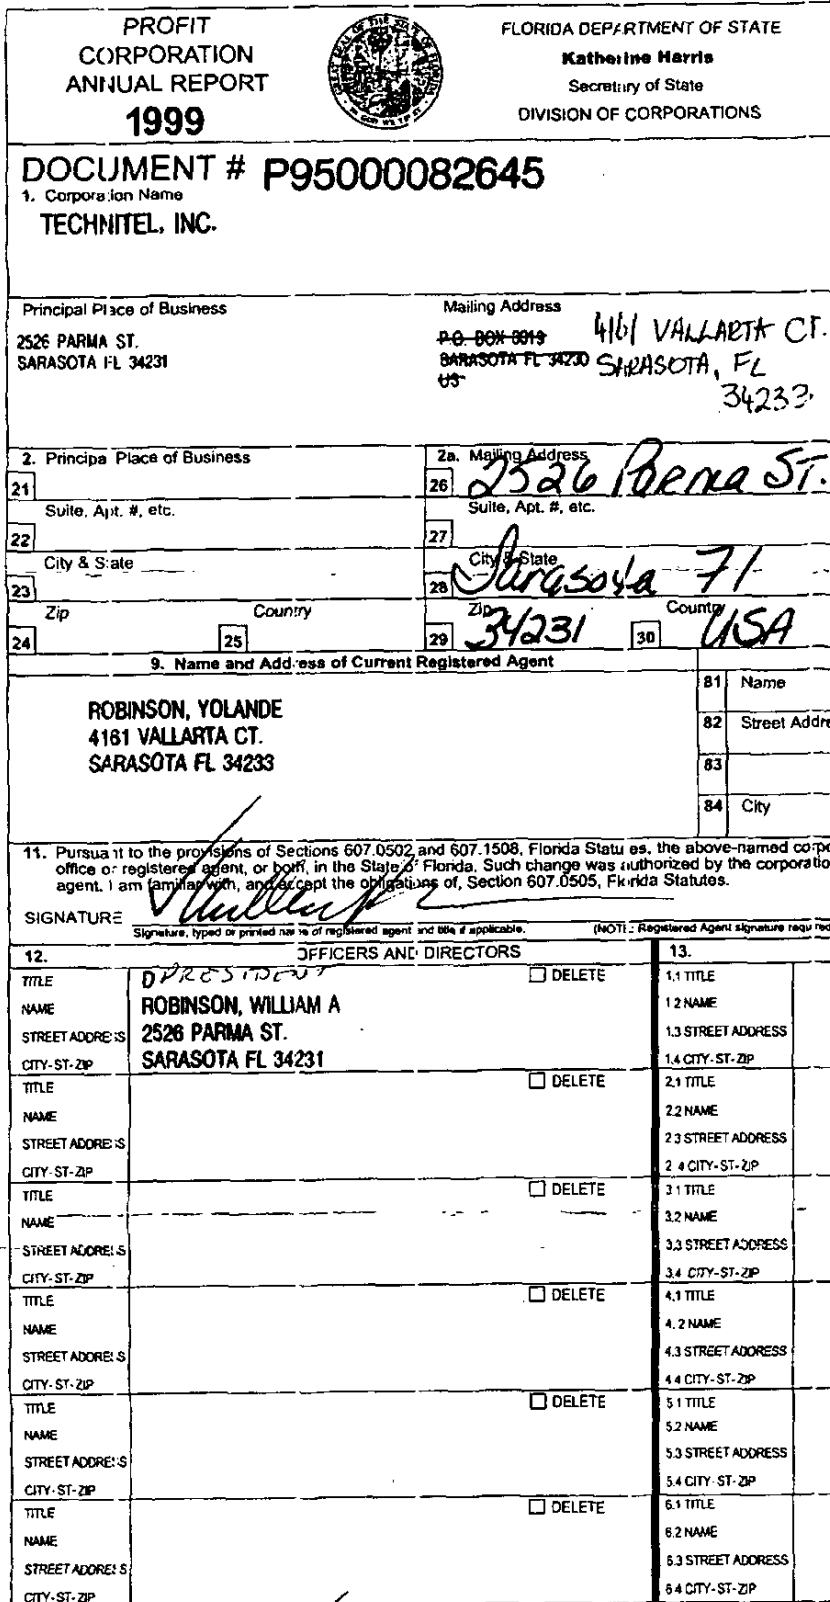 PROFIT
CORPORATION
ANNUAL REPORT
1999
FLORIDA DEPARTMENT OF STATE
Katherine Harris
Secretary of State
DIVISION OF CORPORATIONS
DOCUMENT # P95000082645
1. Corporation Name
TECHNITEL, INC.
Principal Place of Business
2526 PARMA ST.
SARASOTA FL 34231
Mailing Address
P.O. BOX
SARASOTA FL 34230
US
4161 VALLARTA CT.
SARASOTA, FL
34233
2. Principal Place of Business
2a. Mailing Address
21
26 2526 Parma ST.
Suite, Apt. #, etc.
Suite, Apt. #, etc.
22
27
City & State
City & State
23
28 Sarasota Fl
Zip
Country
Zip
Country
24
25
29 34231
30 USA
9. Name and Address of Current Registered Agent
ROBINSON, YOLANDE
4161 VALLARTA CT.
SARASOTA FL 34233
81 Name
82 Street Addre
83
84 City
11. Pursuant to the provisions of Sections 607.0502 and 607.1508, Florida Statutes, the above-named corpo
office or registered agent, or both, in the State of Florida. Such change was authorized by the corporatio
agent. I am familiar with, and accept the obligations of, Section 607.0505, Florida Statutes.
SIGNATURE
Signature, typed or printed name of registered agent and title if applicable.
(NOTE: Registered Agent signature required
12. OFFICERS AND DIRECTORS
13.
TITLE D PRESIDENT DELETE
NAME ROBINSON, WILLIAM A
STREET ADDRESS 2526 PARMA ST.
CITY-ST-ZIP SARASOTA FL 34231
1.1 TITLE
1.2 NAME
1.3 STREET ADDRESS
1.4 CITY-ST-ZIP
TITLE DELETE
NAME
STREET ADDRESS
CITY-ST-ZIP
2.1 TITLE
2.2 NAME
2.3 STREET ADDRESS
2.4 CITY-ST-ZIP
TITLE DELETE
NAME
STREET ADDRESS
CITY-ST-ZIP
3.1 TITLE
3.2 NAME
3.3 STREET ADDRESS
3.4 CITY-ST-ZIP
TITLE DELETE
NAME
STREET ADDRESS
CITY-ST-ZIP
4.1 TITLE
4.2 NAME
4.3 STREET ADDRESS
4.4 CITY-ST-ZIP
TITLE DELETE
NAME
STREET ADDRESS
CITY-ST-ZIP
5.1 TITLE
5.2 NAME
5.3 STREET ADDRESS
5.4 CITY-ST-ZIP
TITLE DELETE
NAME
STREET ADDRESS
CITY-ST-ZIP
6.1 TITLE
6.2 NAME
6.3 STREET ADDRESS
6.4 CITY-ST-ZIP